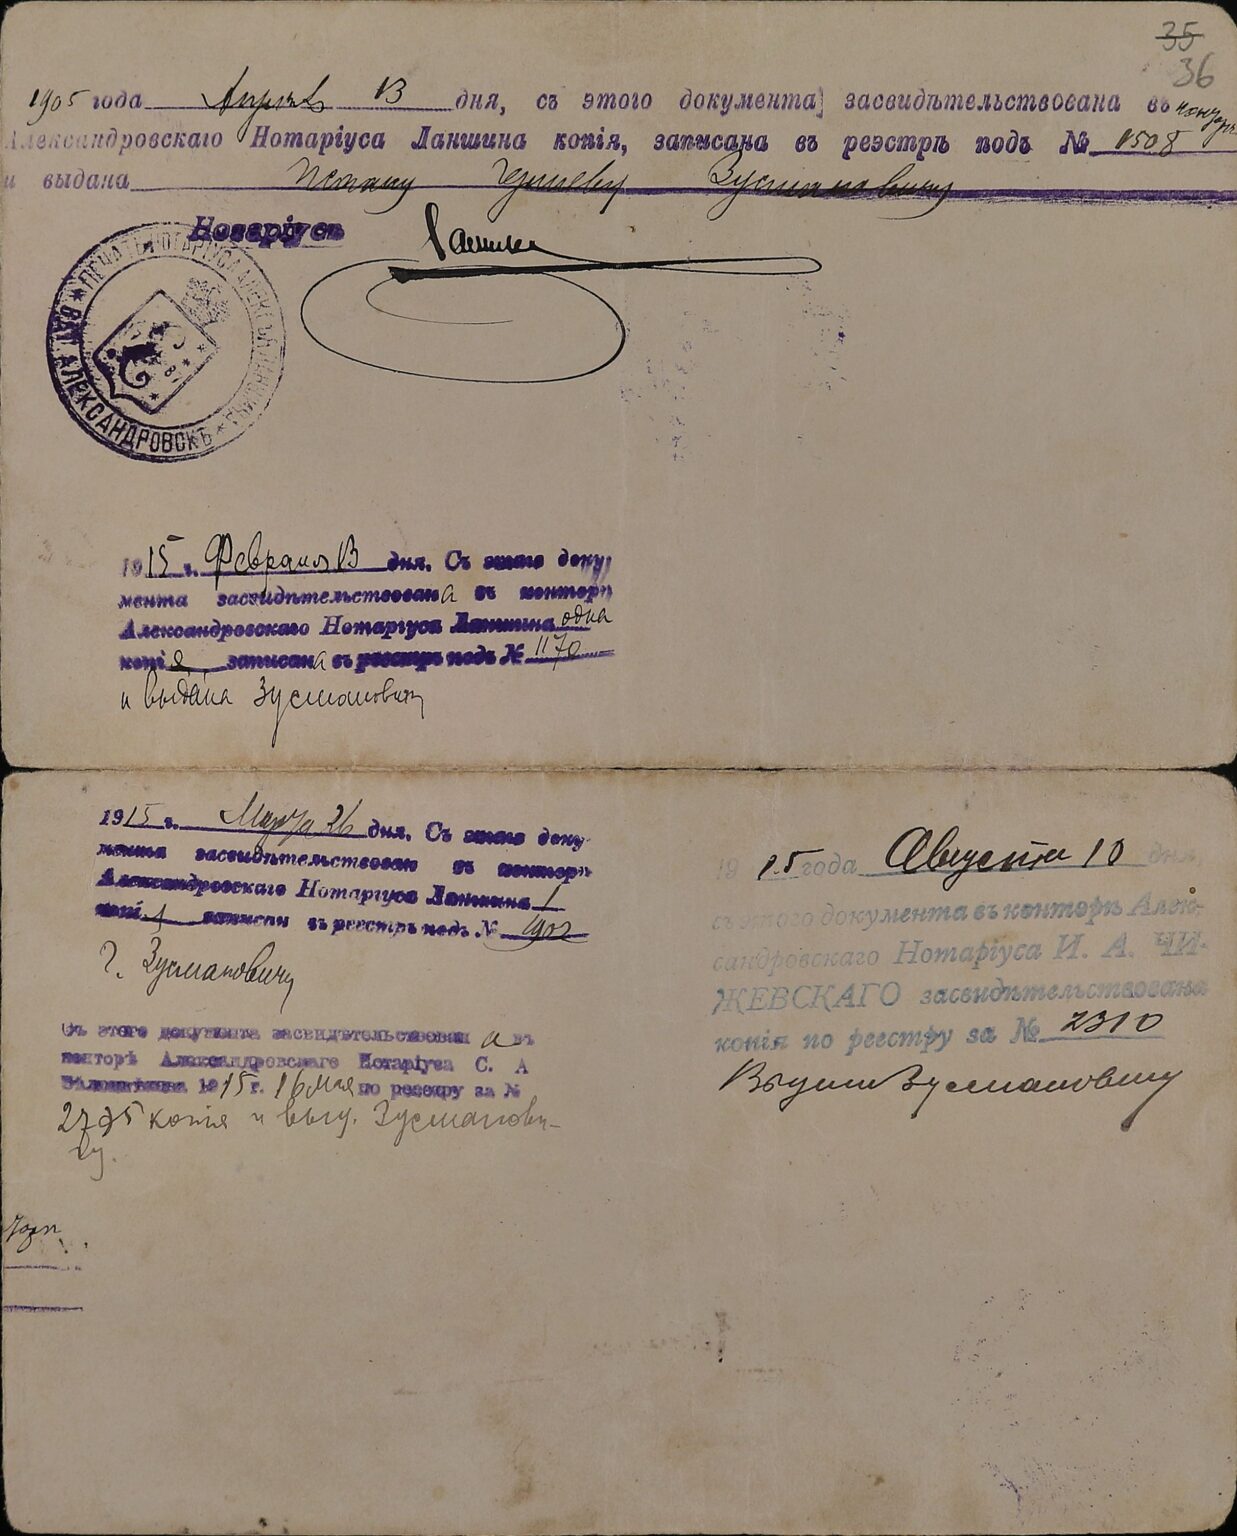 35
36
1905 года Апрѣля 13 дня, съ этого документа засвидѣтельствована въ конторѣ
Александровскаго Нотаріуса Ланшина копія, записана въ реэстрѣ подъ № 1508
и выдана Зусмановичу
Нотаріусъ Ланшин
ПЕЧАТЬ НОТАРІУСА
ВЪ Г. АЛЕКСАНДРОВСКЪ
1915 г. Февраля 13 дня. Съ этого доку-
мента засвидѣтельствована въ конторѣ
Александровскаго Нотаріуса Ланшина одна
копія записана въ реестръ подъ № 1170
и выдана Зусмановичу
1915 г. Марта 26 дня. Съ этого доку-
мента засвидѣтельствован въ конторѣ
Александровскаго Нотаріуса Ланшина 1
копій 1 записан въ реестръ подъ № 1902
Г. Зусмановичу
Съ этого документа засвидѣтельствована въ
конторѣ Александровскаго Нотаріуса С. А
1915 г. 16 мая по реестру за №
2735 копія и выд. Зусманови-
чу.
1915 года Августа 10 дня,
съ этого документа въ конторѣ Алек-
сандровскаго Нотаріуса И. А. ЧИ-
ЖЕВСКАГО засвидѣтельствована
копія по реестру за № 2310
Зусмановичу